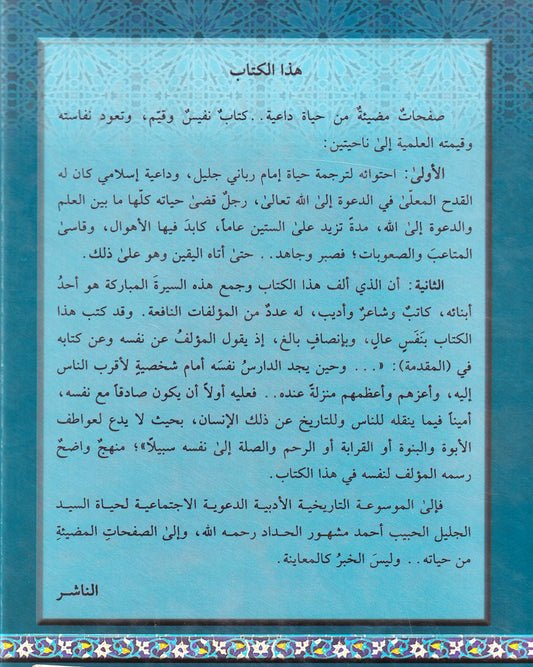 هذا الكتاب
صفحاتٌ مضيئةٌ من حياة داعية..كتابٌ نفيسٌ وقيّم، وتعود نفاسته
وقيمته العلمية إلىٰ ناحيتين:
الأولىٰ: احتوائه لترجمة حياة إمام رباني جليل، وداعية إسلامي كان له
القدح المعلّىٰ في الدعوة إلىٰ الله تعالىٰ، رجلٌ قضىٰ حياته كلّها ما بين العلم
والدعوة إلىٰ الله، مدةً تزيد علىٰ الستين عاماً، كابدَ فيها الأهوال، وقاسىٰ
المتاعبَ والصعوبات؛ فصبر وجاهد.. حتىٰ أتاه اليقين وهو علىٰ ذلك.
الثانية: أن الذي ألف هذا الكتاب وجمع هذه السيرةَ المباركة هو أحدُ
أبنائه، كاتبٌ وشاعرٌ وأديب، له عددٌ من المؤلفات النافعة. وقد كتب هذا
الكتاب بنَفَسٍ عالٍ، وبإنصافٍ بالغ، إذ يقول المؤلفُ عن نفسه وعن كتابه
في (المقدمة): «... وحين يجد الدارسُ نفسَه أمام شخصيةٍ لأقرب الناس
إليه، وأعزهم وأعظمهم منزلةً عنده.. فعليه أولاً أن يكون صادقاً مع نفسه،
أميناً فيما ينقله للناس وللتاريخ عن ذلك الإنسان، بحيث لا يدع لعواطف
الأبوة والبنوة أو القرابة أو الرحم والصلة إلىٰ نفسه سبيلاً»؛ منهجٌ واضحٌ
رسمه المؤلف لنفسه في هذا الكتاب.
فإلىٰ الموسوعة التاريخية الأدبية الدعوية الاجتماعية لحياة السيد
الجليل الحبيب أحمد مشهور الحداد رحمه الله، وإلىٰ الصفحاتِ المضيئةِ
من حياته.. وليسَ الخبرُ كالمعاينة.
الناشر